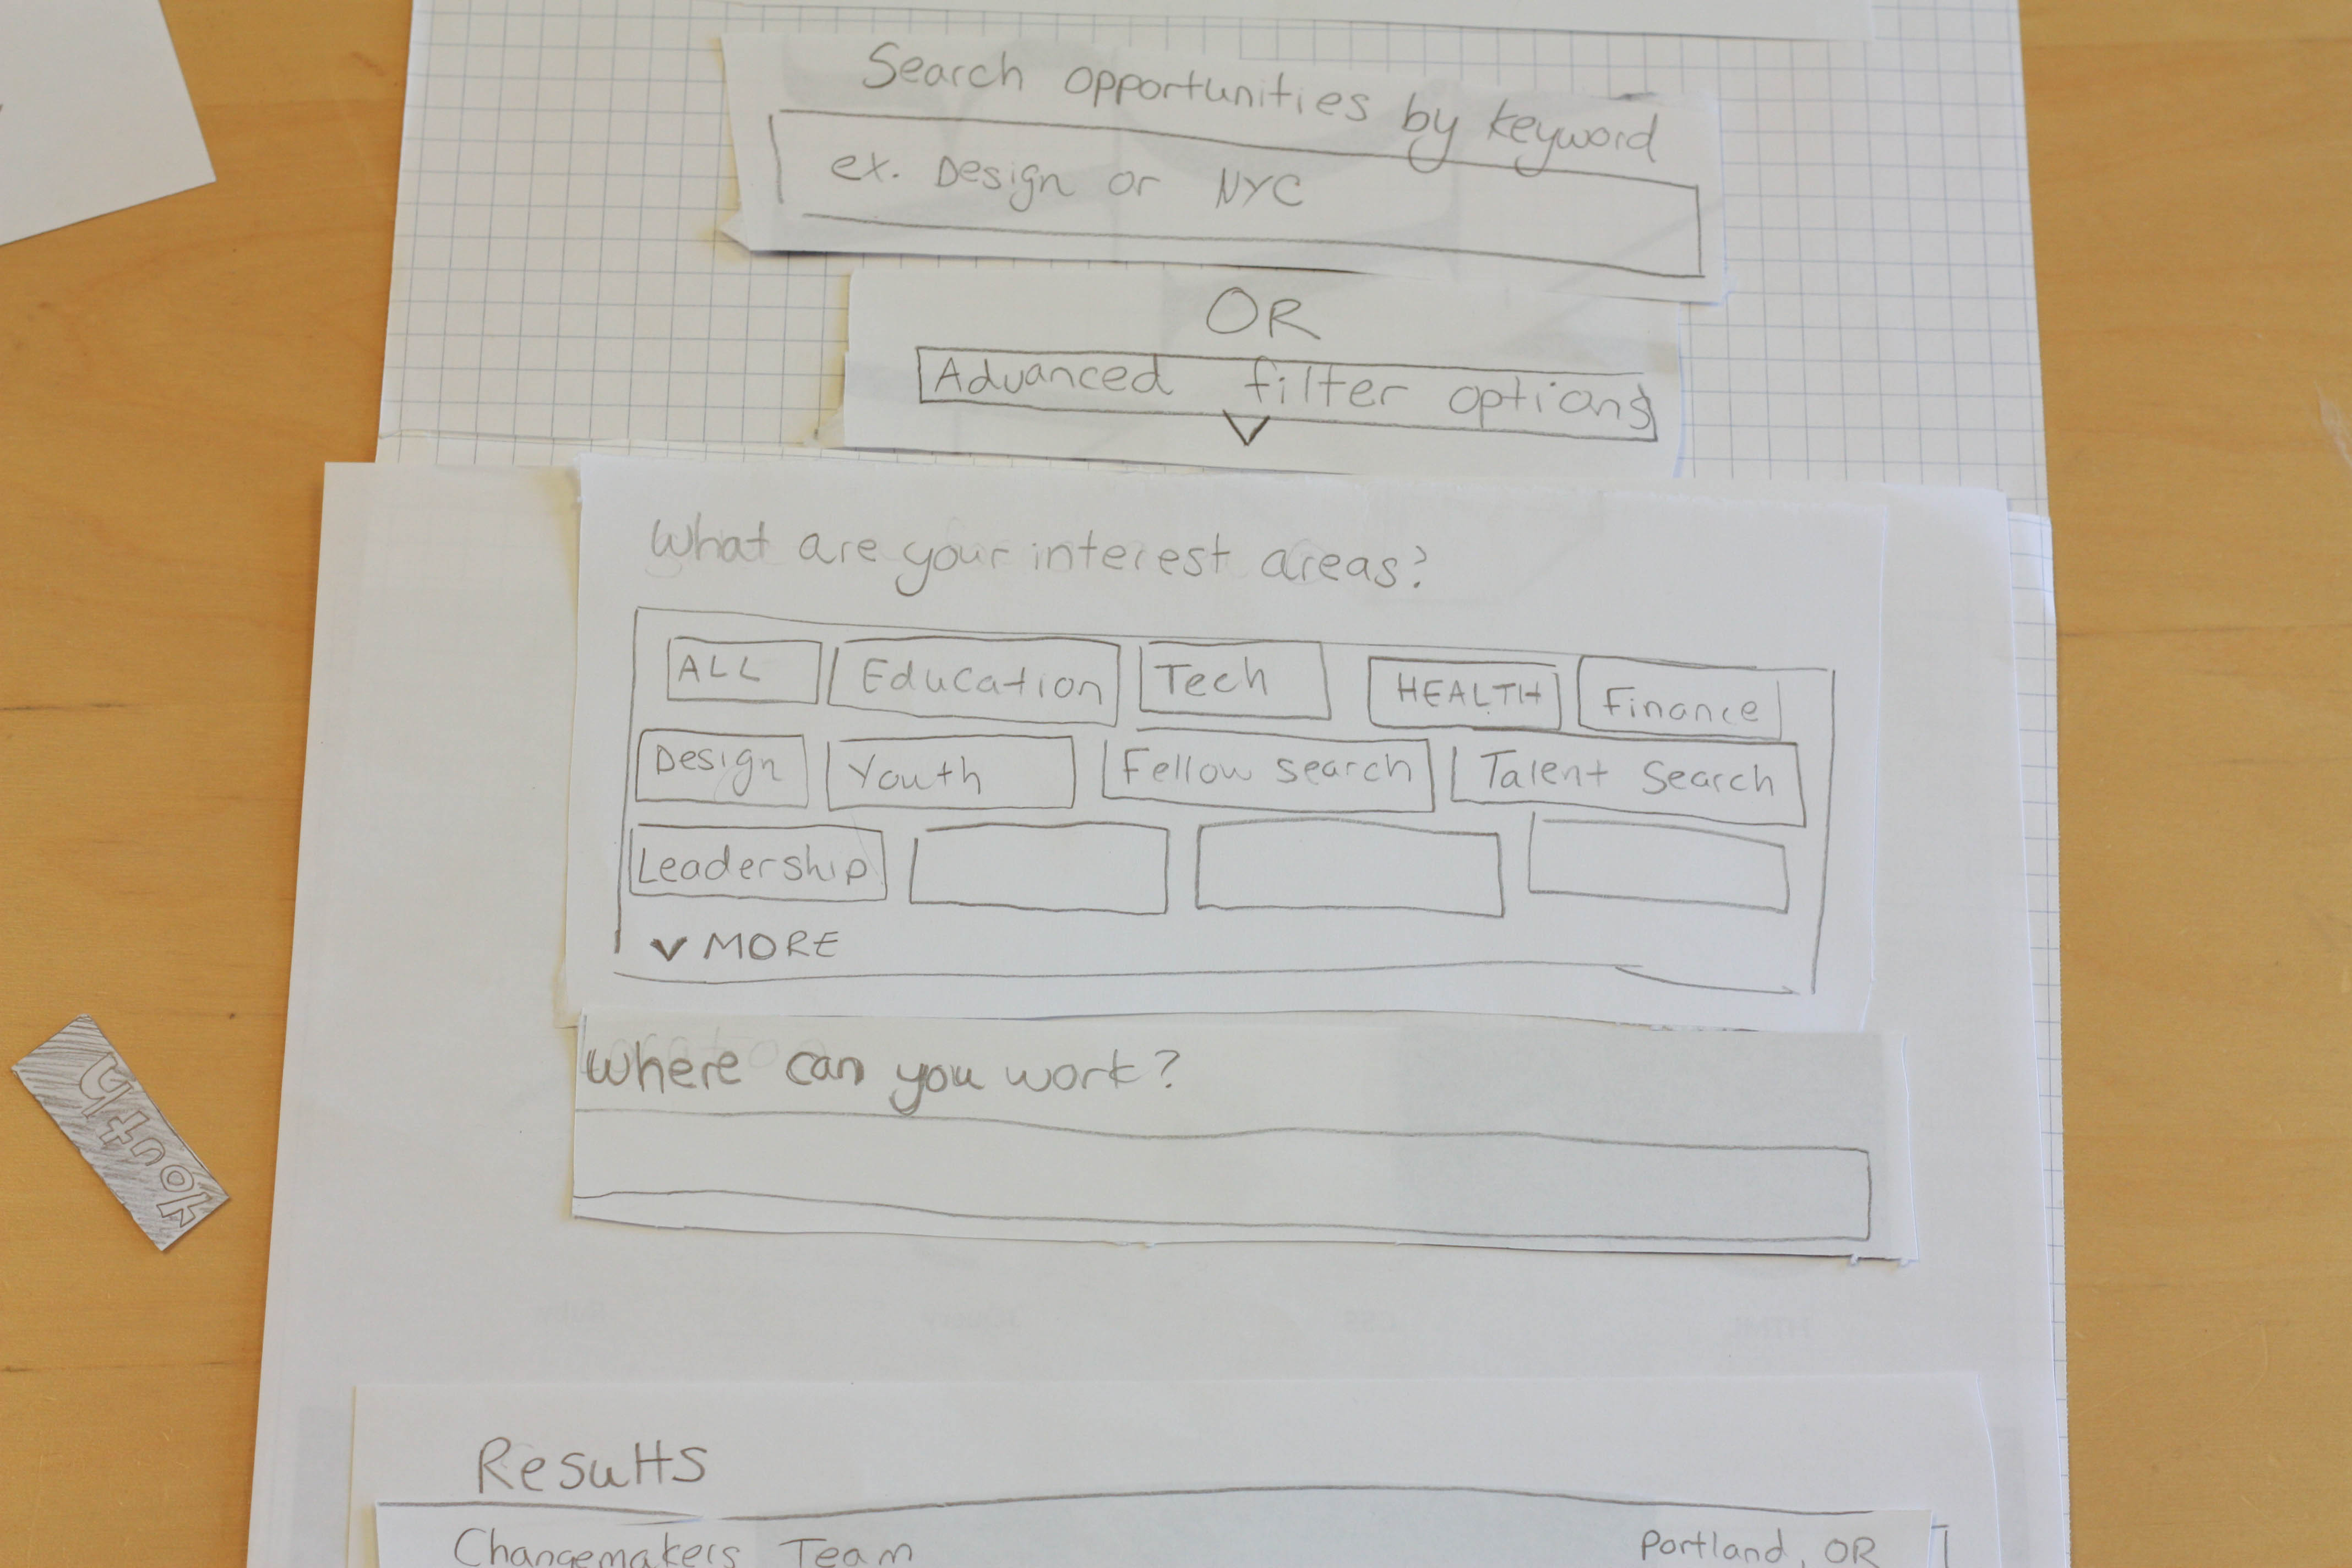 Search opportunities by keyword
ex. Design or NYC
OR
Advanced filter options
What are your interest areas?
ALL Education Tech HEALTH Finance
Design Youth Fellow search Talent Search
Leadership
MORE
Where can you work?
Youth
Results
Changemakers Team Portland, OR